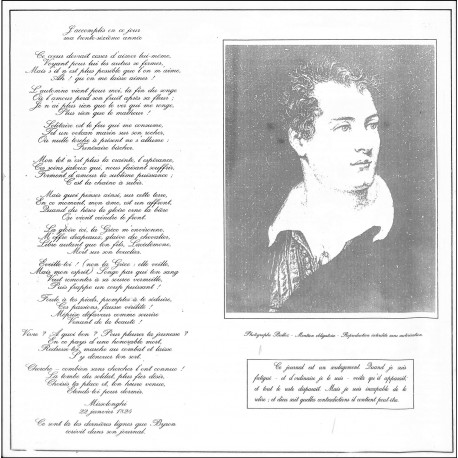 J'accomplis en ce jour
ma trente-sixième année
Ce cœur devrait cesser d'aimer lui-même,
Voyant pour lui les autres se fermer,
Mais s'il n'est plus possible que l'on m'aime,
Ah ! qu'on me laisse aimer !
L'automne vient pour moi, la fin du songe
Où l'amour perd son fruit après sa fleur ;
Je n'ai plus rien que le ver qui me ronge,
Plus rien que le malheur !
Solitaire est le feu qui me consume,
Tel un volcan marin sur son rocher,
Où nulle torche à présent ne s'allume :
Funéraire bûcher.
Mon lot n'est plus la crainte, l'espérance,
Ces soins jaloux qui, nous faisant souffrir,
Prennent d'amour la sublime puissance ;
C'est la chaîne à subir.
Mais quoi penser ainsi, sur cette terre,
En ce moment, mon âme, est un affront,
Quand du héros la gloire orne la bière
Ou vient ceindre le front.
La gloire ici, la Grèce m'environne,
M'offre drapeaux, glaive du chevalier,
Libre autant que ton fils, Lacédémone,
Mort sur son bouclier.
Eveille-toi ! (non la Grèce : elle veille,
Mais mon esprit) Songe par qui ton sang
Veut remonter à sa source vermeille,
Puis frappe un coup puissant !
Foule à tes pieds, promptes à te séduire,
Ces passions, fausse virilité !
Méprise défaveur comme sourire
Venant de la beauté !
Vivre ? A quoi bon ? Pour pleurer ta jeunesse ?
En ce pays d'une honorable mort,
Redresse-toi, marche au combat et laisse
S'y donner ton sort.
Cherche - combien sans chercher l'ont connue !
La tombe du soldat, plus fier des
Choisis ta place et, ton heure venue,
Etends-toi pour dormir.
Missolonghi
22 janvier 1824
Ce sont là les dernières lignes que Byron
écrivit dans son journal.
Photographie Bulloz - Mention obligatoire - Reproduction interdite sans autorisation.
Ce journal est un soulagement. Quand je suis
fatigué - et d'ordinaire je le suis - voilà qu'il apparaît,
et tout le reste disparaît. Mais je suis incapable de le
relire ; et dieu sait quelles contradictions il contient peut-être.